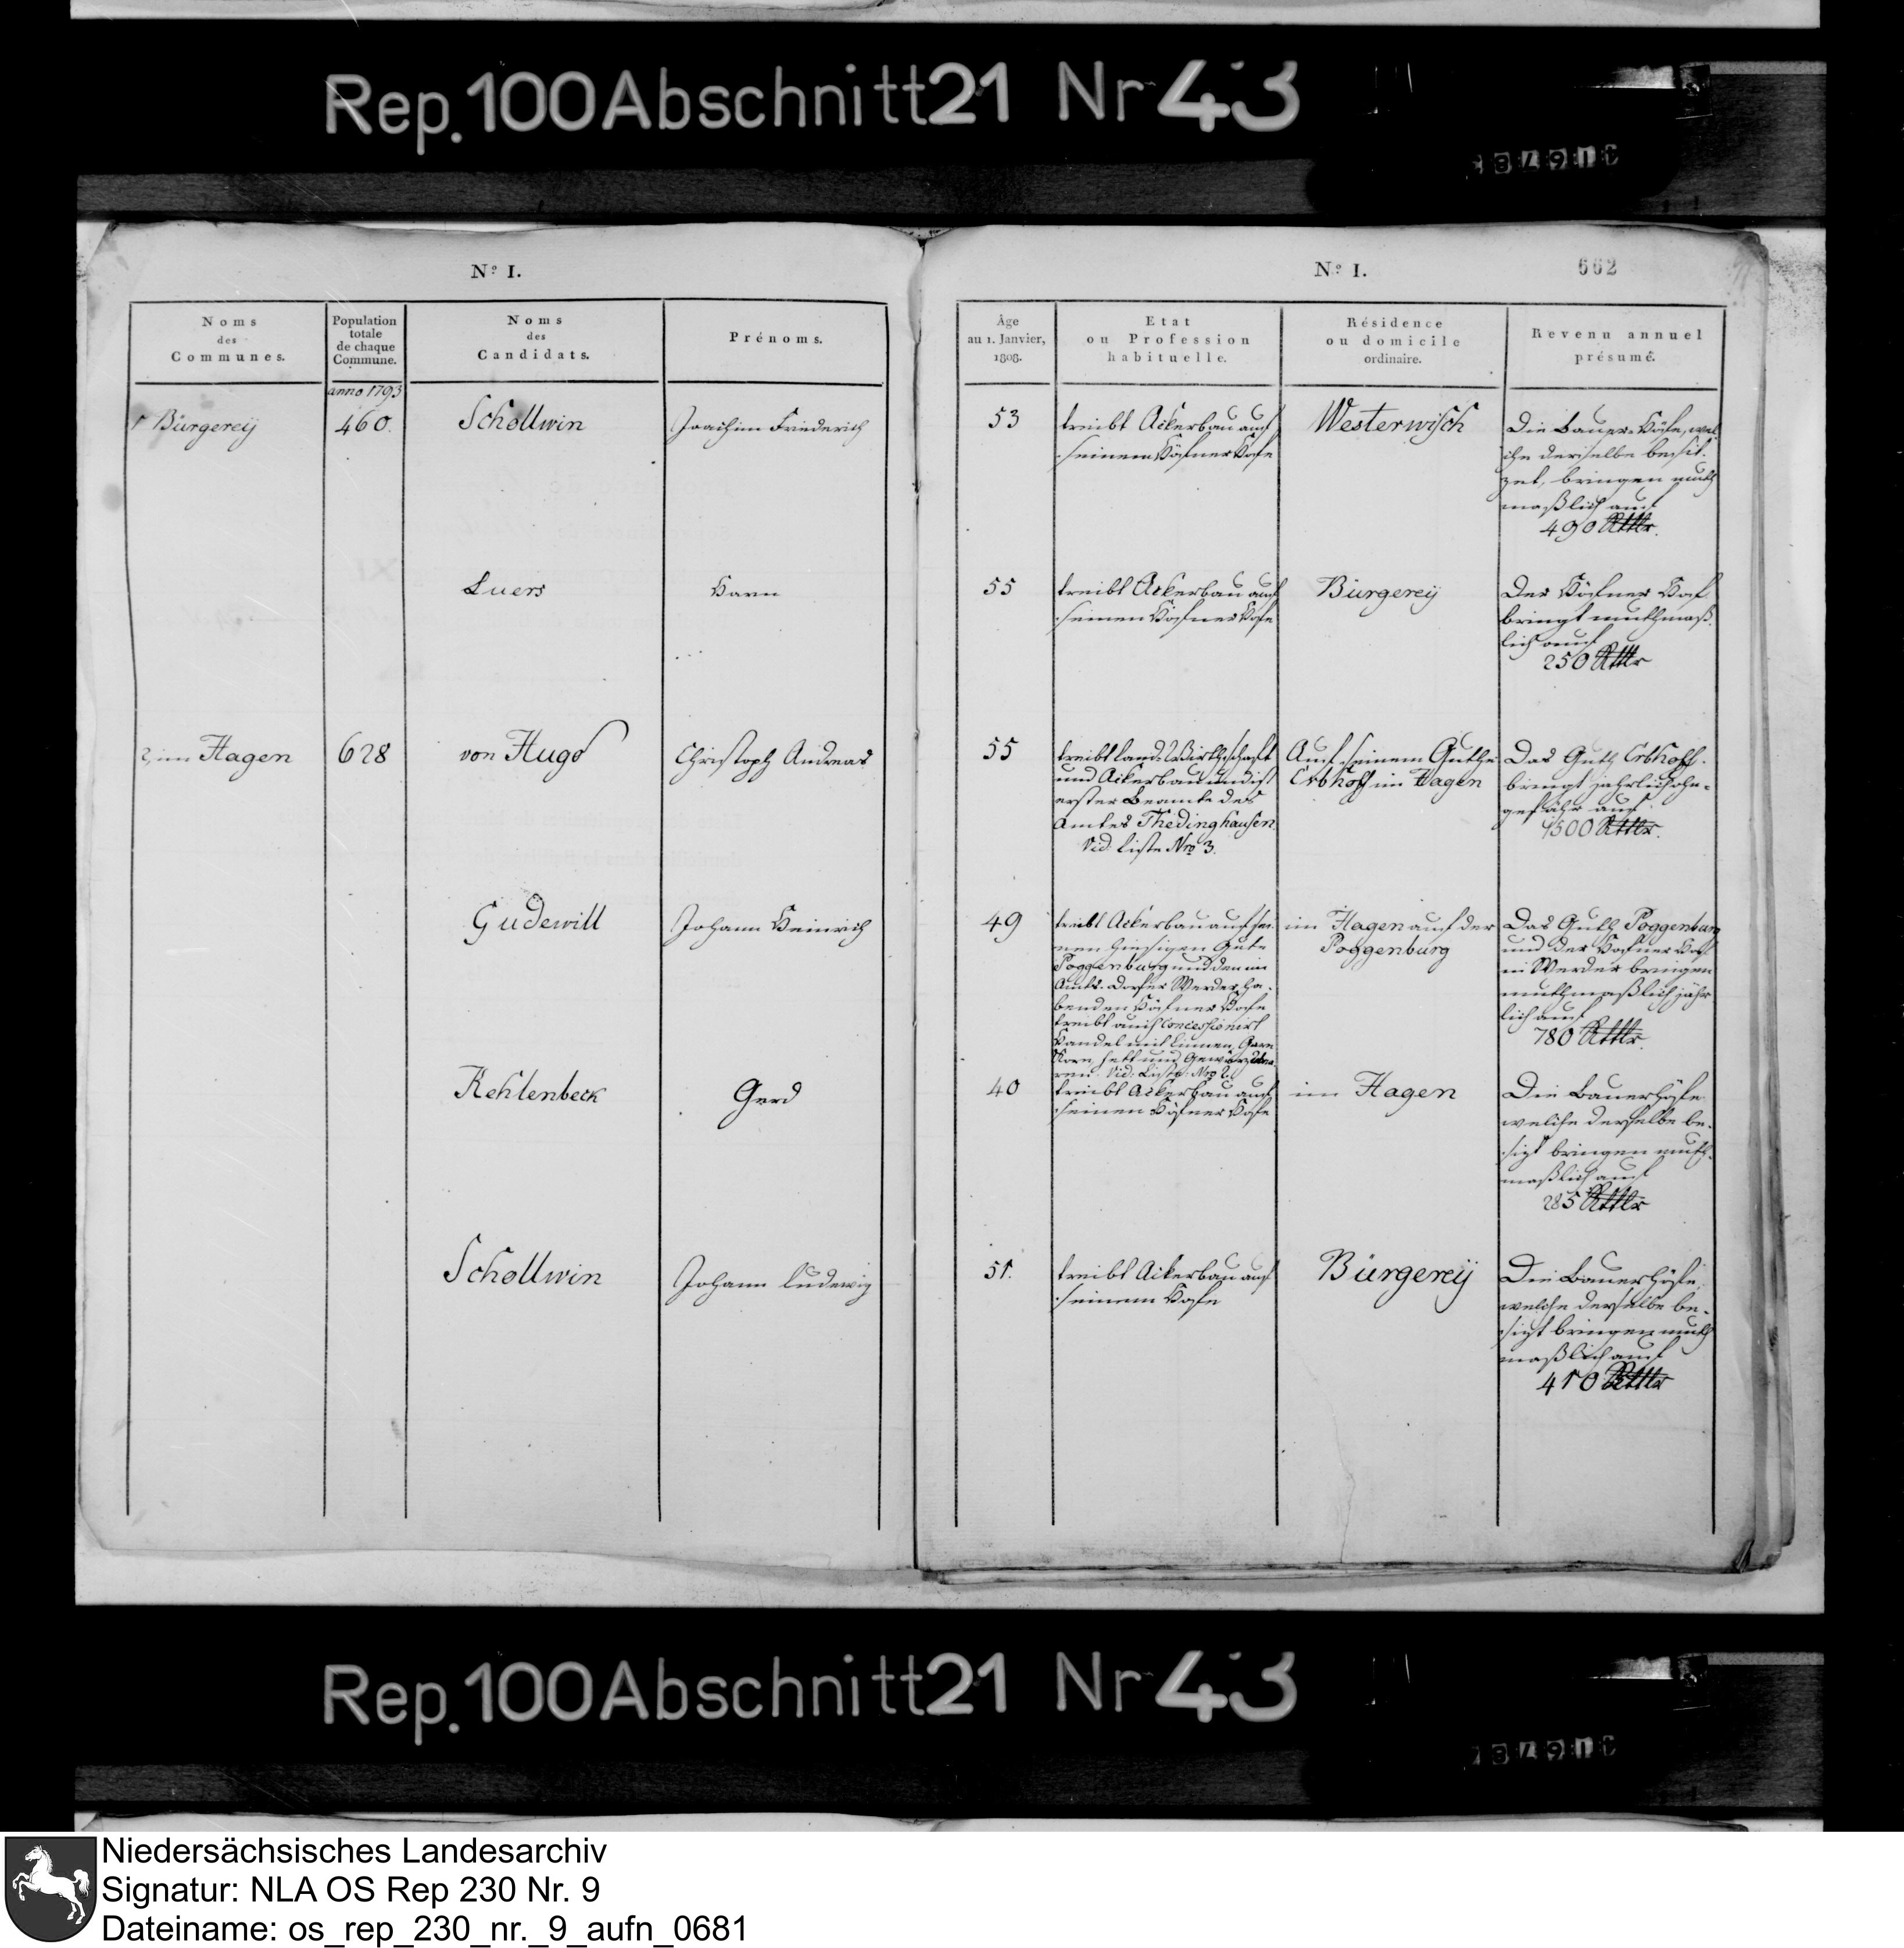 Rep. 100 Abschnitt 21 Nr 43
No I.
Noms des Communes.
Population totale de chaque Commune.
Noms des Candidats.
Prénoms.
anno 1793
1 Bürgereÿ
460.
Schollwin
Joachim Friederich
Luers
Harm
2, im Hagen
628
von Hugo
Christoph Andreas
Gudewill
Johann Heinrich
Kehlenbeck
Gerd
Schollwin
Johann Ludewig
No I.
662
Âge au 1. Janvier, 1808.
Etat ou Profession habituelle.
Résidence ou domicile ordinaire.
Revenu annuel présumé.
53
treibt Ackerbau auf
seinem Höfner Hofe
Westerwisch
Die Bauer-Höfe, wel
che derselbe besit-
zet, bringen muth
maßlich auf
490 Rthlr.
55
treibt Ackerbau auf
seinen Höfner Hofe
Bürgereÿ
Der Höfner Hof
bringt muthmaß-
lich auf
250 Rthlr
55
treibt Land-Wirthschaft
und Ackerbau und ist
erster Beamte des
Amtes Thedinghausen.
Vid. Liste Nro 3.
Auf seinem Guthe
Erbhoff im Hagen
Das Guth Erbhoff
bringt jahrlich ohn-
gefähr auf
1500 Rthlr.
49
treibt Ackerbau auf sei
nen hiesigen Gute
Poggenburg und den im
Amts-Dorfe Werder ha-
benden Höfner Hofe
treibt auch concessionirt
Handel mit Linnen, Garn
Korn, Fett und Gewürzwaa
ren. Vid. Liste Nro 2.
im Hagen auf der
Poggenburg
Das Guth Poggenburg
und der Höfner Hof
in Werder bringen
muthmaßlich jähr
lich auf
780 Rthlr.
40
treibt Ackerbau auf
seinen Höfner Hofe
im Hagen
Die Bauerhöfe
welche derselbe be-
sizt bringen muth-
maßlich auf
285 Rthlr
51.
treibt Ackerbau auf
seinem Hofe
Bürgereÿ
Die Bauerhöfe,
welche derselbe be-
sizt bringen muth
maßlich auf
410 Rthlr
Rep. 100 Abschnitt 21 Nr 43
Niedersächsisches Landesarchiv
Signatur: NLA OS Rep 230 Nr. 9
Dateiname: os_rep_230_nr._9_aufn_0681